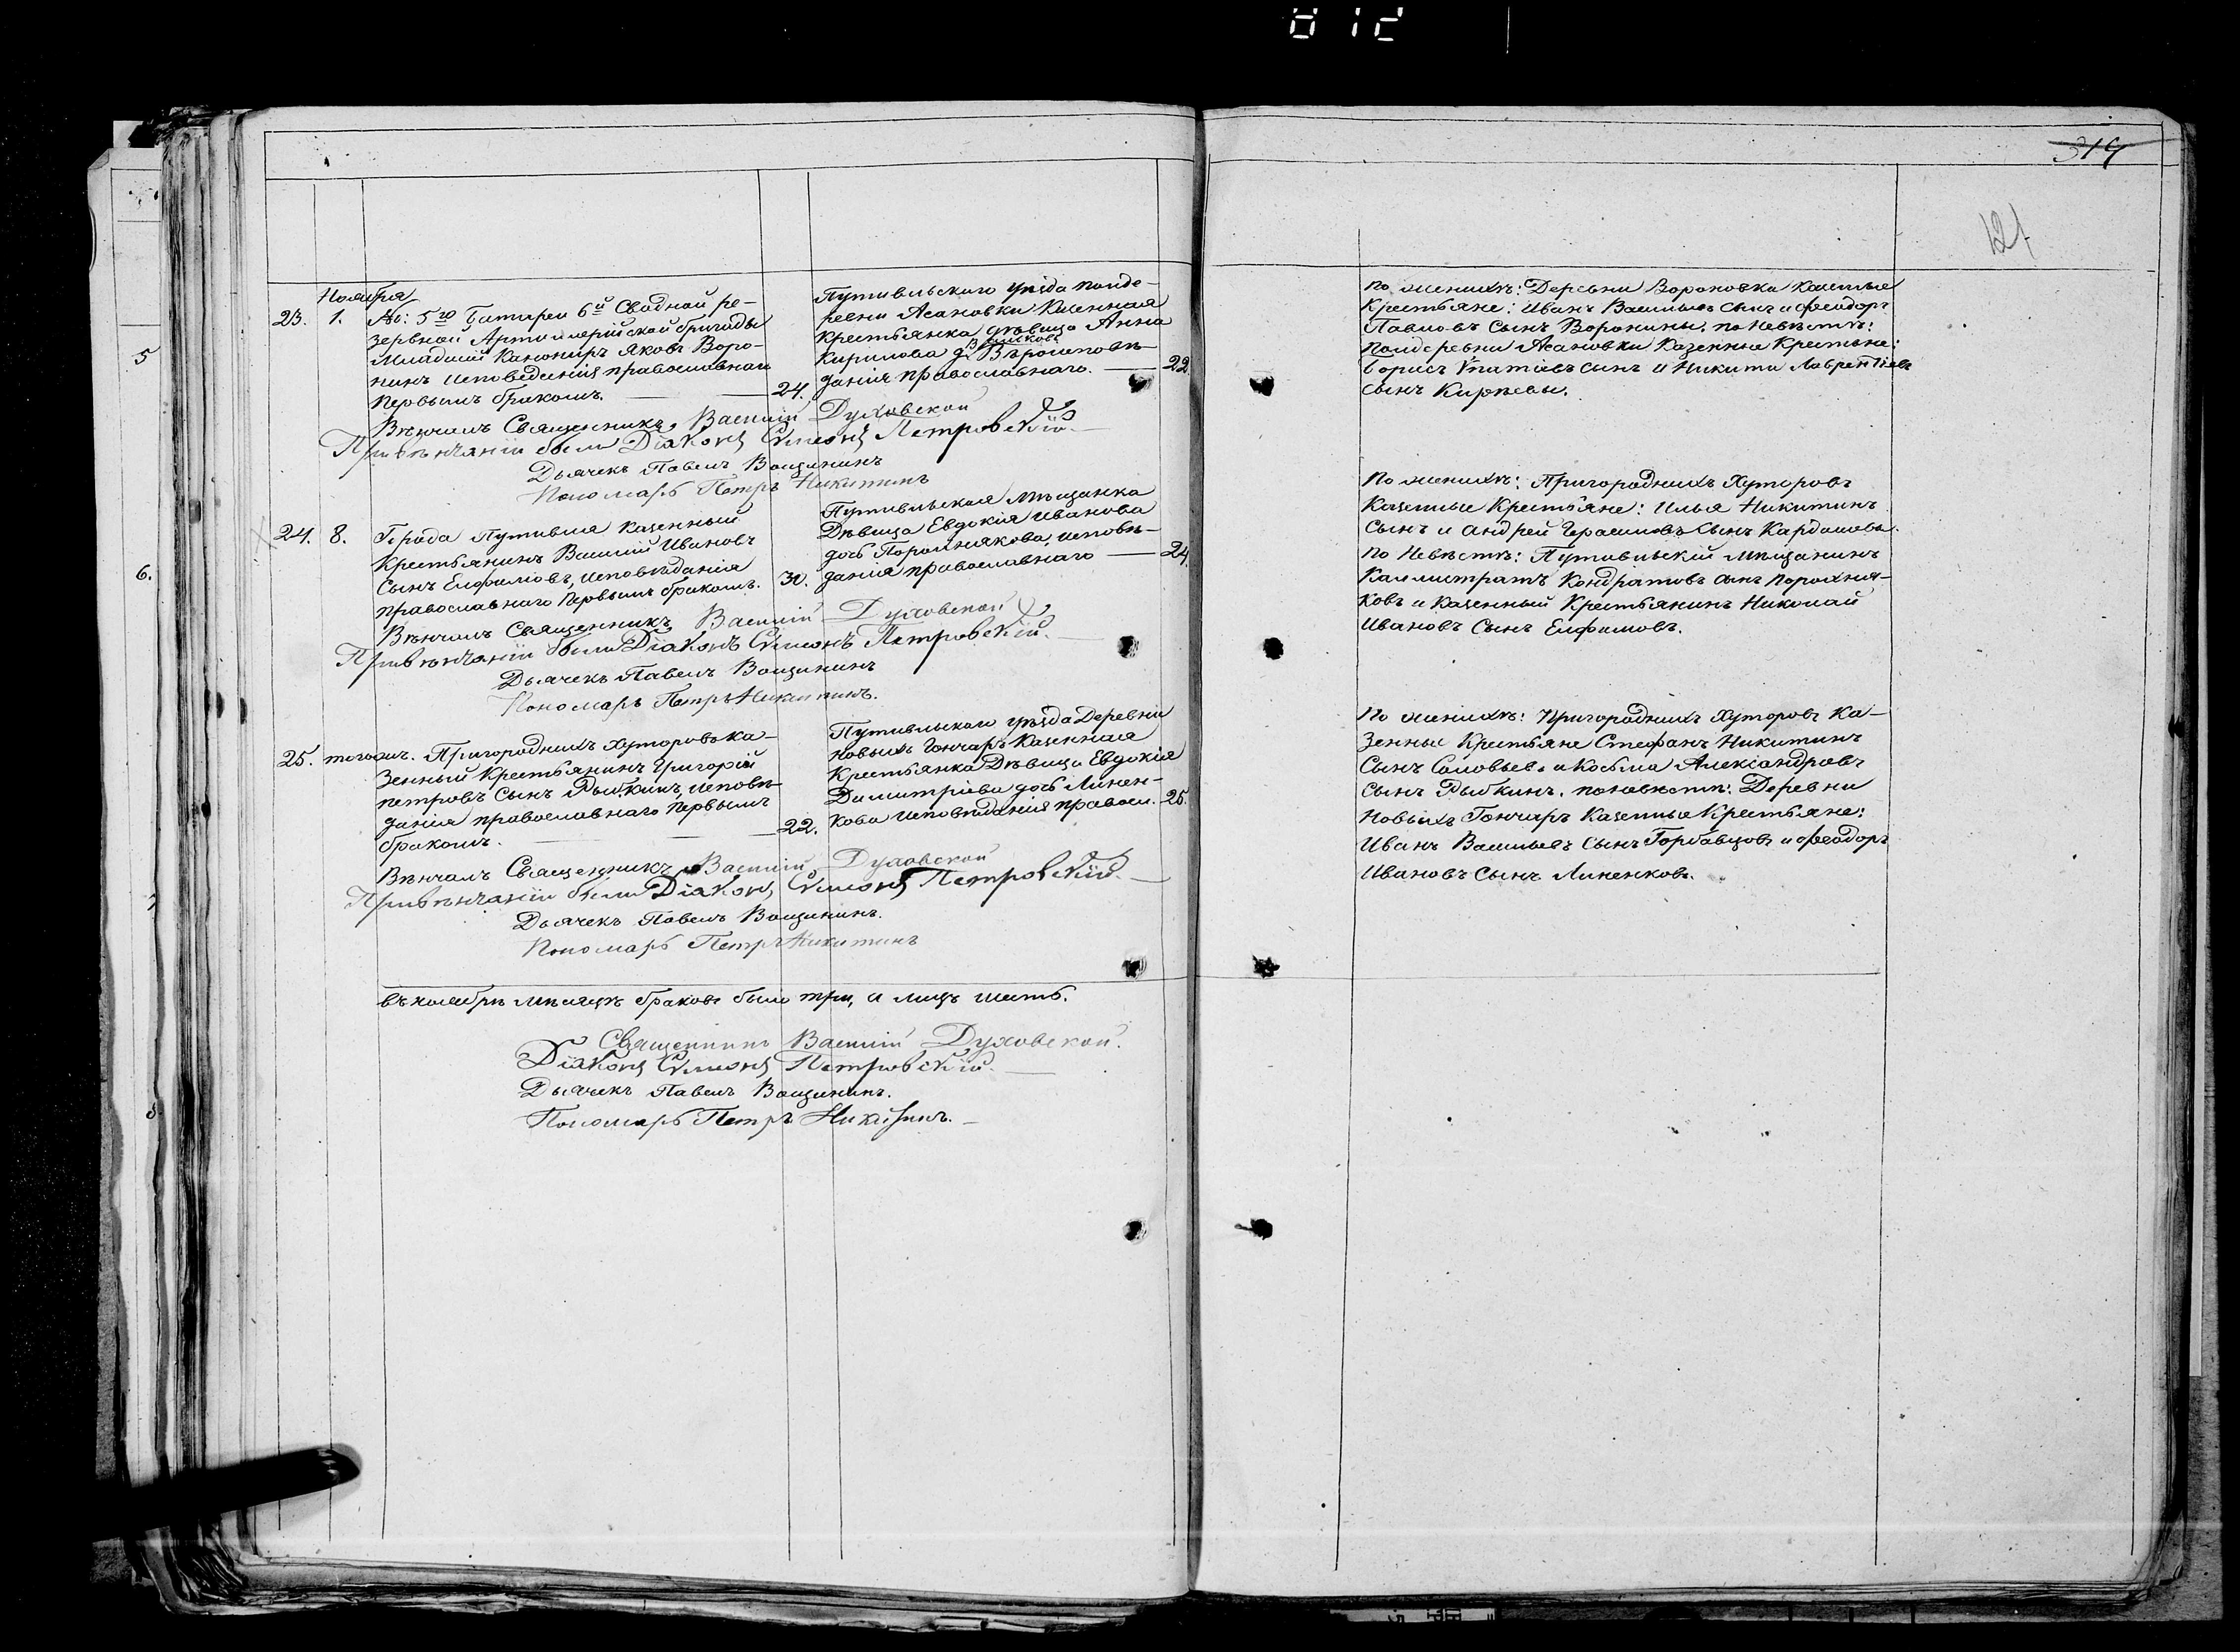 012
319
121
Ноября
23. 1. №: 5го Батареи 6й Сводной ре-
зервной Артиллерійской бригады
Младшій Канониръ Яковъ Воро-
нинъ исповеданія православнаго
первымъ бракомъ. — 24.
Путивльскаго уѣзда
ревни Асановки Казенная
крестьянка дѣвица Анна
Кирилова
данія православнаго. — 22
Вѣнчалъ Священникъ Василій Духовской
При вѣнчаніи были Діаконъ Сѵмеонъ Петровскій.
Дьячекъ Павелъ Вощининъ
Пономарь Петръ Никитинъ
По женихѣ: Деревни Вороновки казенные
Крестьяне: Иванъ Васильевъ сынъ и Феодоръ
Павловъ Сынъ Воронины. по невѣстѣ:
Асановки Казенные Крестьяне:
Борисъ Ѵпатіевъ сынъ и Никита Лаврентіевъ
сынъ
24. 8. Города Путивля казенный
Крестьянинъ Василій Ивановъ
Сынъ Елфимовъ, исповѣданія
православнаго первымъ бракомъ. 30.
Путивльская Мѣщанка
Дѣвица Евдокія Иванова
дочь исповѣ-
данія православнаго — 24
Вѣнчалъ Священникъ Василій Духовской
При вѣнчаніи были Діаконъ Сѵмеонъ Петровскій.
Дьячекъ Павелъ Вощининъ
Пономарь Петръ Никитинъ.
По женихѣ: Пригородныхъ Хуторовъ
Казенные Крестьяне: Илья Никитинъ
Сынъ и Андрей Герасимовъ Сынъ
По Невѣстѣ: Путивльскій Мѣщанинъ
Каллистратъ Кондратовъ сынъ Порожня-
ковъ и Казенный Крестьянинъ Николай
Ивановъ Сынъ Елфимовъ.
25. тогожъ. Пригородныхъ хуторовъ ка-
зенный Крестьянинъ Григорій
Петровъ Сынъ Рыбкинъ, исповѣ-
данія православнаго первымъ
бракомъ. — 22.
Путивльскаго уѣзда Деревни
Новыхъ Гончаръ Казенная
Крестьянка Дѣвица Евдокія
Димитріева дочь Линен-
кова исповѣданія правосл. 25.
Вѣнчалъ Священникъ Василій Духовской
При вѣнчаніи были Діаконъ Сѵмеонъ Петровскій. —
Дьячекъ Павелъ Вощининъ.
Пономарь Петръ Никитинъ
По женихѣ: Пригородныхъ Хуторовъ Ка-
зенные Крестьяне Стефанъ Никитинъ
Сынъ Соловьевъ и Косьма Александровъ
сынъ Рыбкинъ. по невѣстѣ: Деревни
Новыхъ Гончаръ Казенные Крестьяне:
Иванъ Васильевъ сынъ и Феодоръ
Ивановъ Сынъ Линенковъ.
Въ ноябрѣ мѣсяцѣ браковъ было три, а лицъ шесть.
Священникъ Василій Духовской.
Діаконъ Сѵмеонъ Петровскій. —
Дьячекъ Павелъ Вощининъ.
Пономарь Петръ Никитинъ. —
5
6.